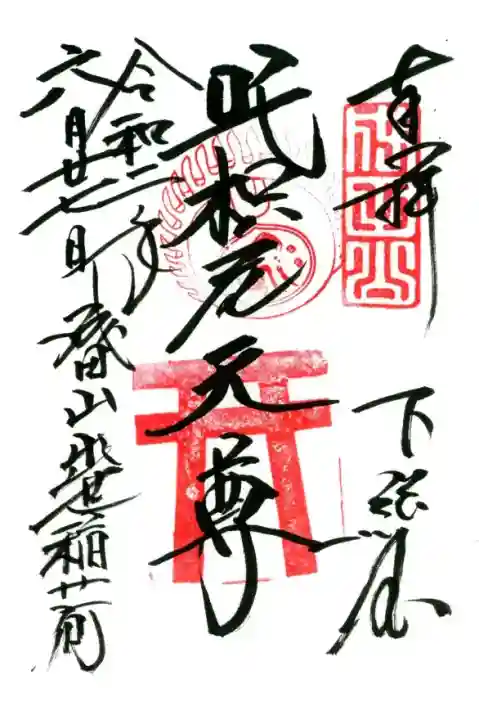 奉拝
下総国
吒枳尼天尊
令和二年
六月廿七日
成田山出世稲荷